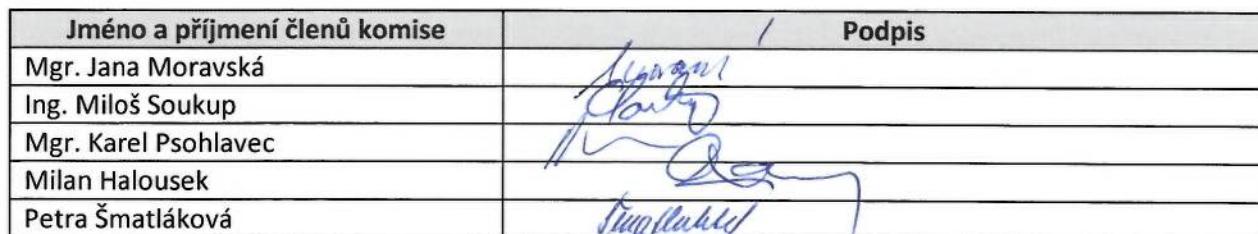 Jméno a příjmení členů komise Podpis
Mgr. Jana Moravská
Ing. Miloš Soukup
Mgr. Karel Psohlavec
Milan Halousek
Petra Šmatláková